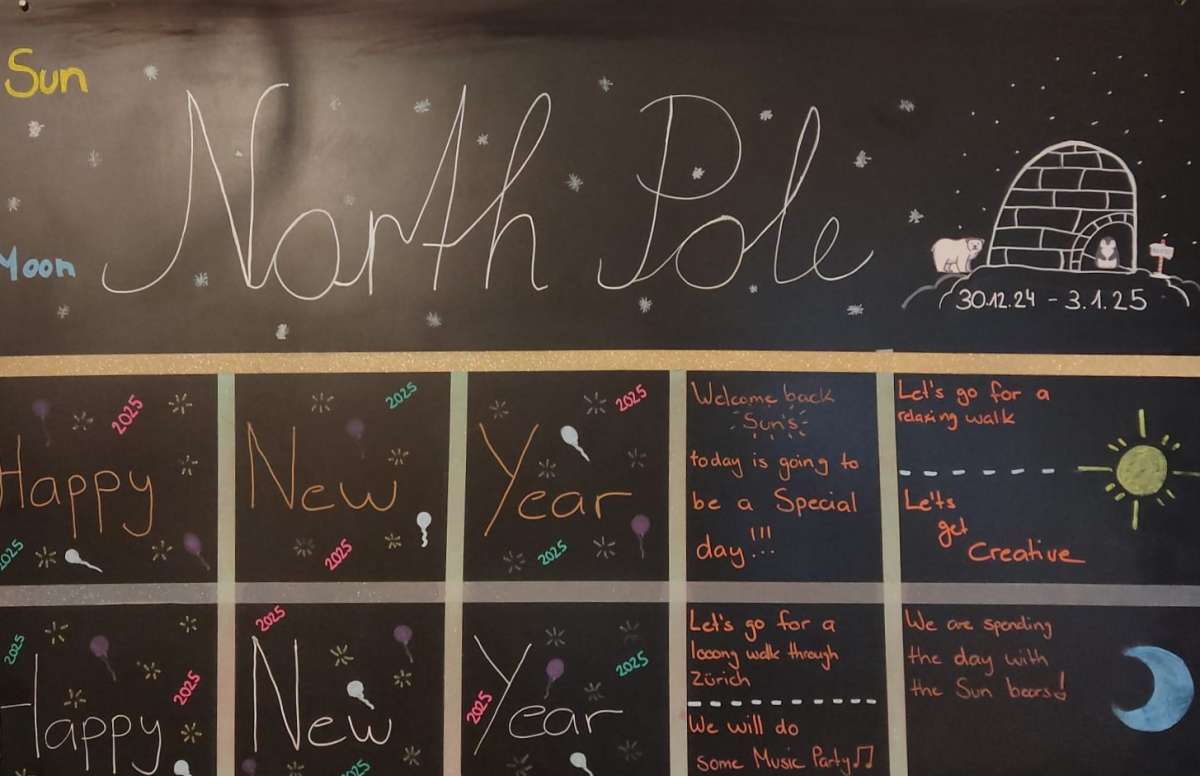 Sun
North Pole
Moon
30.12.24 - 3.1.25
2025
Happy
2025
2025
New
2025
2025
Year
2025
Welcome back
Sun's
today is going to
be a Special
day!!!
Let's go for a
relaxing walk
Le'ts
get
Creative
2025
Happy
2025
2025
New
2025
2025
Year
2025
Let's go for a
looong walk through
Zürich
We will do
some Music Party♫
We are spending
the day with
the Sun bears!